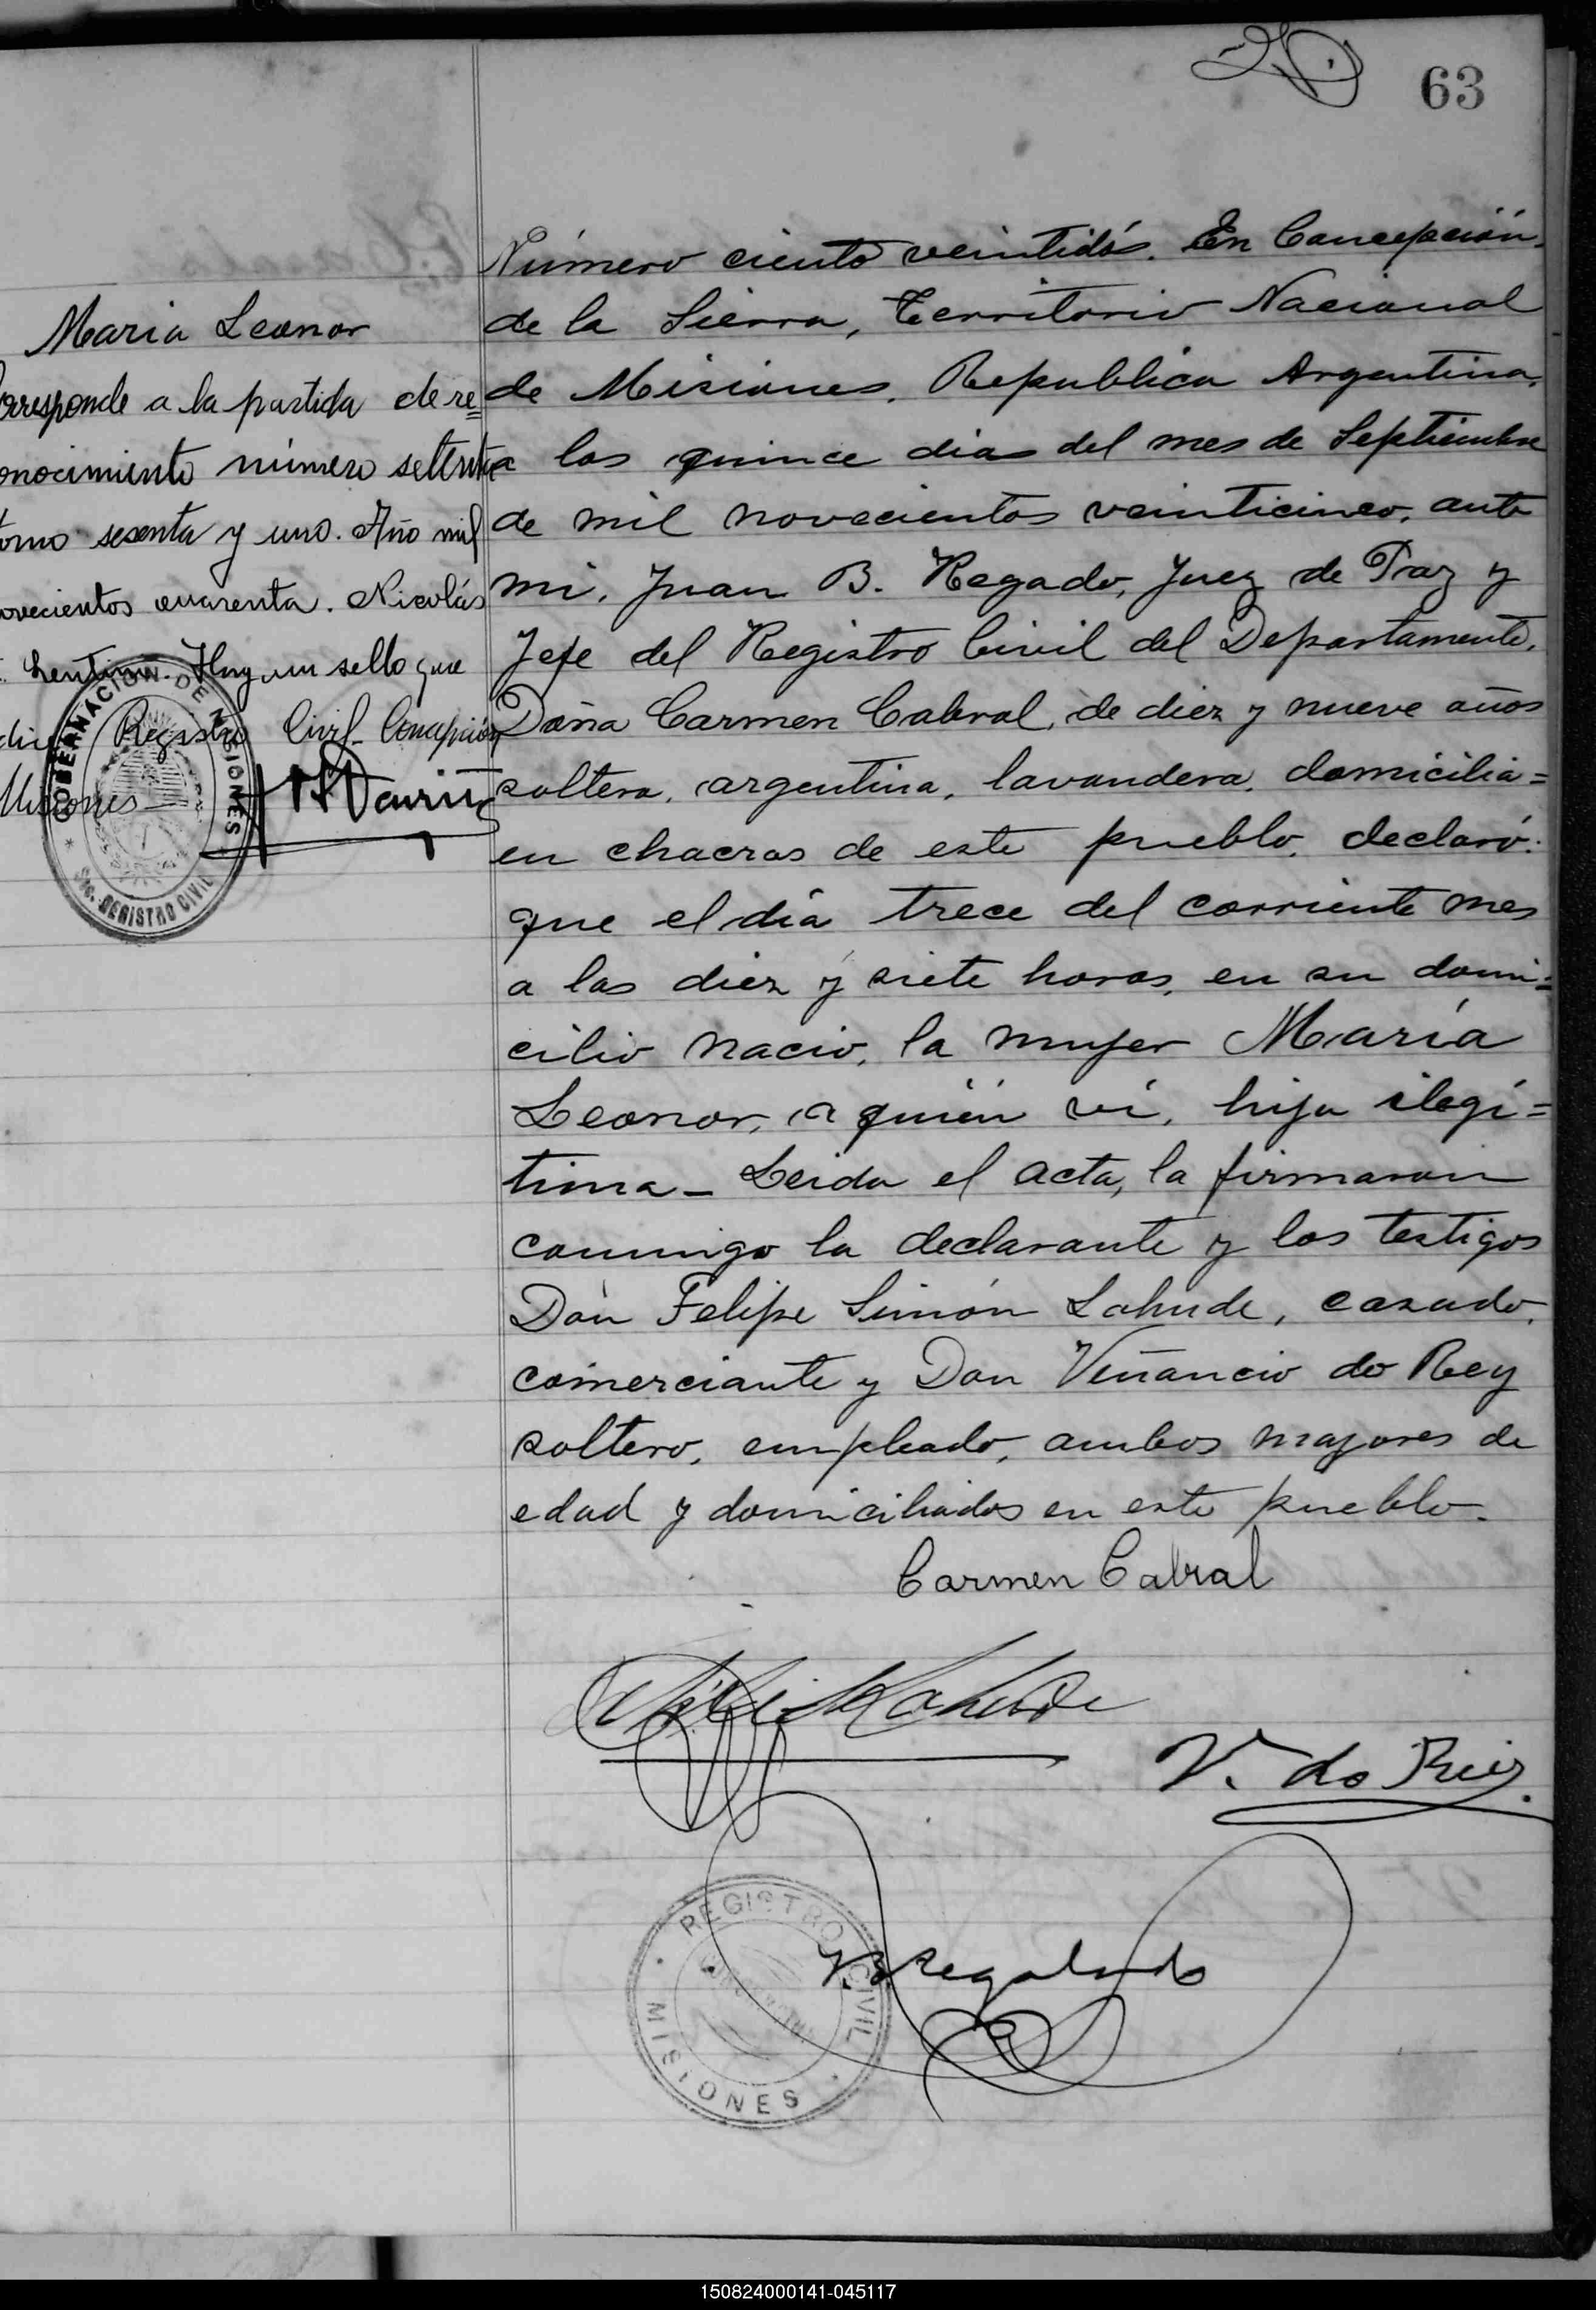 63
Maria Leonor
orresponde a la partida de re=
onocimiento número setenta
tomo sesenta y uno. Año mil
ovecientos cuarenta. Nicolás
Hay un sello que
dice Registro Civil Concepción
Misiones
GOBERNACION DE MISIONES
SEC. REGISTRO CIVIL
Número ciento veintidós. En Concepción
de la Sierra, Territorio Nacional
de Misiones, Republica Argentina,
a los quince dias del mes de Septiembre
de mil novecientos veinticinco, ante
mi, Juan B. Regado, Juez de Paz y
Jefe del Registro Civil del Departamento,
Doña Carmen Cabral, de diez y nueve años
soltera, argentina, lavandera, domicilia=
en chacras de este pueblo, declaró:
que el día trece del corriente mes
a las diez y siete horas, en su domi=
cilio nacio, la mujer María
Leonor, a quién vi, hija ilegí=
tima_ Leida el acta, la firmaron
conmigo la declarante y los testigos
Don Felipe Simón Lahude, casado,
comerciante y Don Viñancio do Rey
soltero, empleado, ambos mayores de
edad y domiciliados en este pueblo.
Carmen Cabral
Lahude
V. do Rey.
Regalado
REGISTRO CIVIL
MISIONES
150824000141-045117